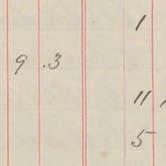 1
9 .3
11
5